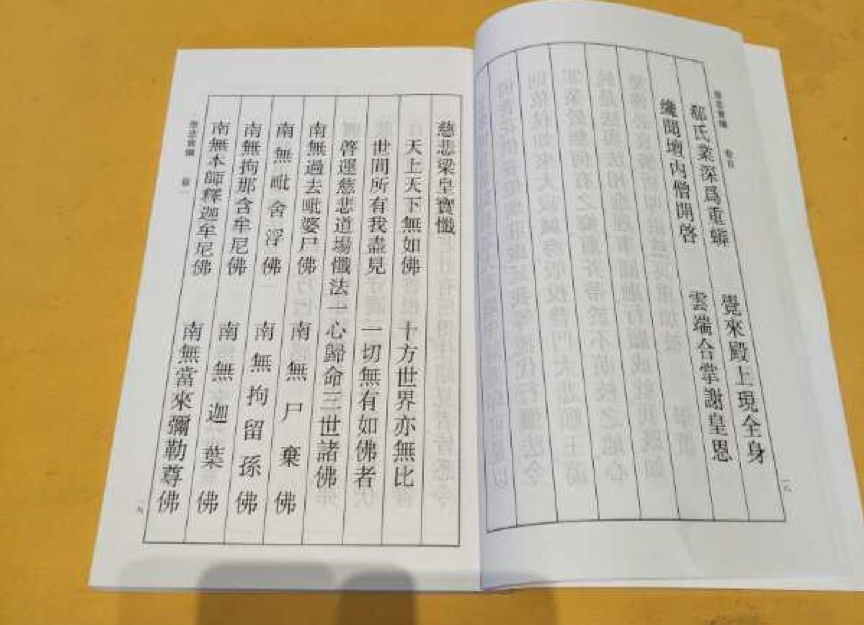 郗氏業深爲重蟒 覺來殿上現全身
纔聞壇內僧開啓 雲端合掌謝皇恩
慈悲梁皇寶懺
天上天下無如佛 十方世界亦無比
世間所有我盡見 一切無有如佛者
啓運慈悲道場懺法一心歸命三世諸佛
南無過去毗婆尸佛 南無尸棄佛
南無毗舍浮佛 南無拘留孫佛
南無拘那含牟尼佛 南無迦葉佛
南無本師釋迦牟尼佛 南無當來彌勒尊佛
一九